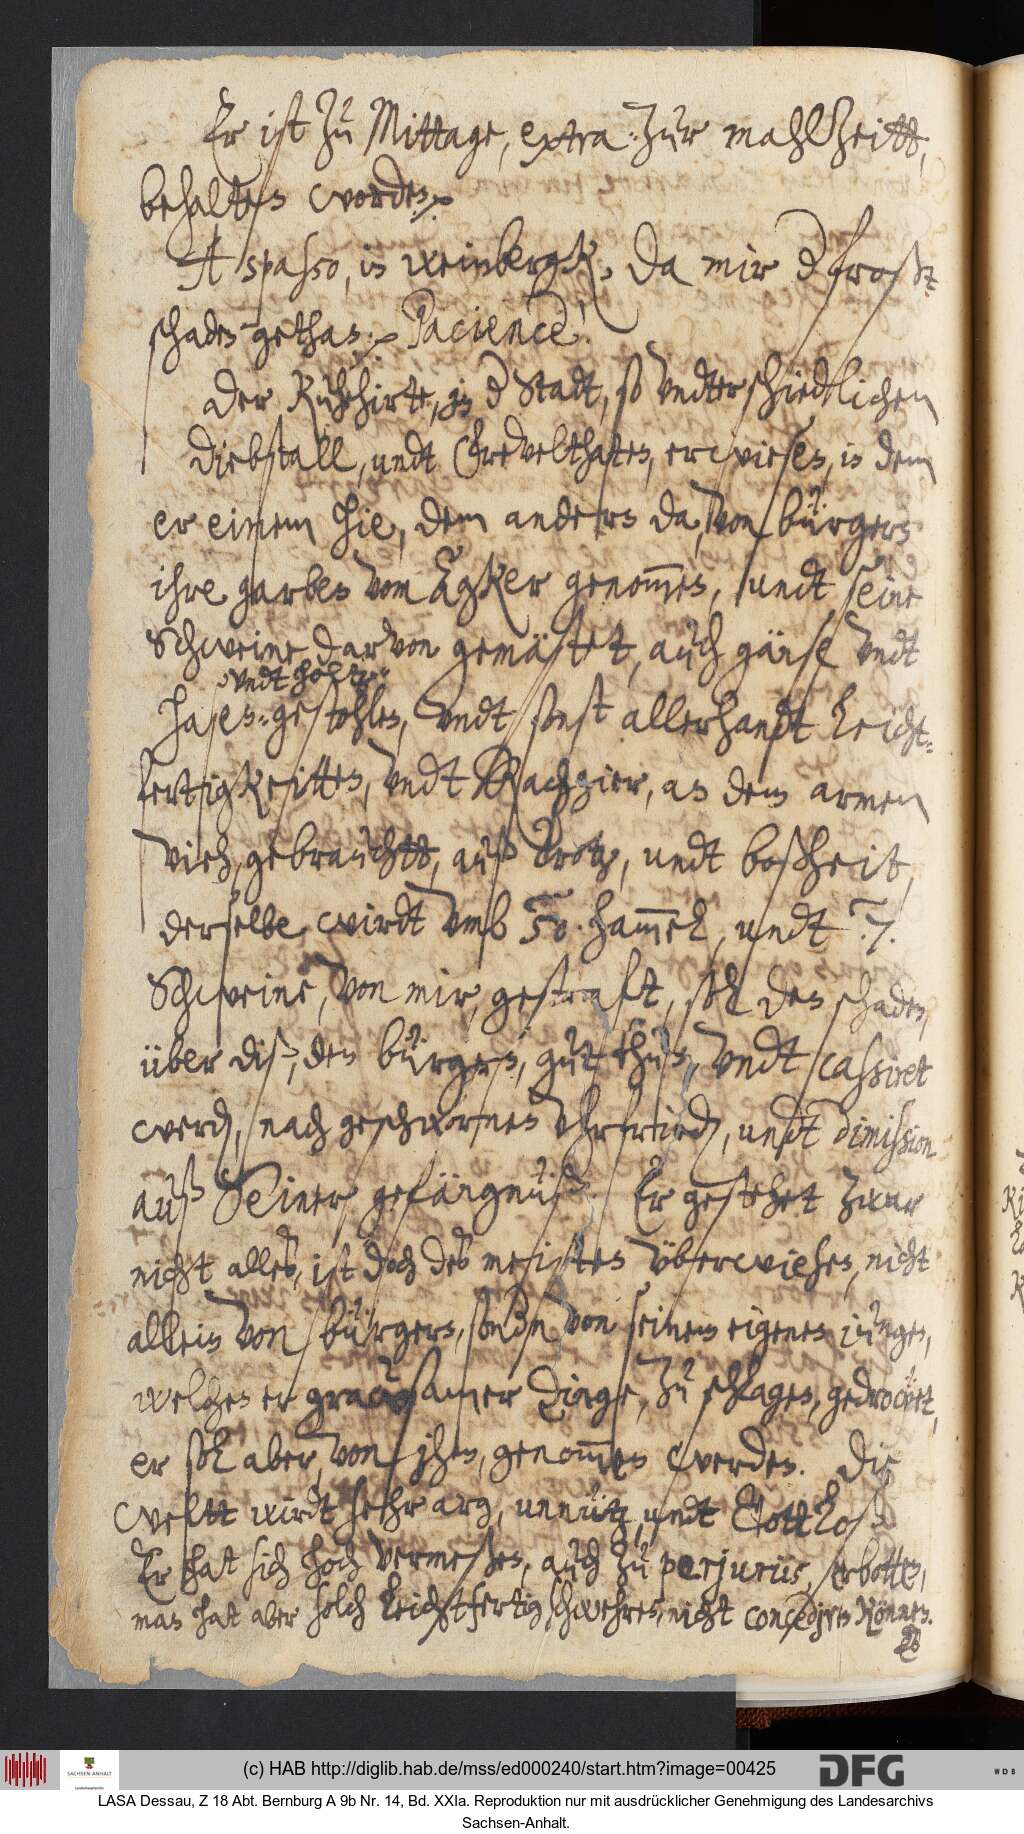 Er ist zu Mittage, extra: zur mahlzeitt,
behalten worden.
A spasso, in weinbergk, da mir d frost
schaden gethan. Pacience!
Der Kuhehirte, in d Stadt, so undterschiedlichen
Diebstall, undt Frevelthaten, erwiesen, in dem
er einem hie, dem andern da, von bürgern
ihre garben vom Agker genom̅en, undt seine
Schweine darvon gemästet, auch gänse undt
undt höltz
hasen gestohlen, undt sonst allerhandt Leicht-
fertigkeitten, undt Rachgier, an dem armen
vieh, gebrauchtt, auß Trotz, undt boßheit,
derselbe wirdt umb 50. ham̅el, undt 7.
Schweine, von mir, gestraft, sol den schaden,
über diß, den bürgern, gut thun, undt cassiret
werd, nach geschwornen Uhrfried, undt dimission
auß Seiner gefängnüß. Er gestehet zwar
nicht alles, ist doch des meisten überwiesen, nicht
allein von bürgern, sond'n von seinem eigenen jungen,
welchen er grausamer Dinge, zu schlagen, gedrowet,
er sol aber, von jhm, genom̅en werden. Die
Weltt wirdt sehr arg, unnütz, undt Gottloß
Er hat sich hoch vermeßen, auch zu perjuriis, erbotten,
man hat aber solch Leichtfertig schwehren, nicht concediren können.